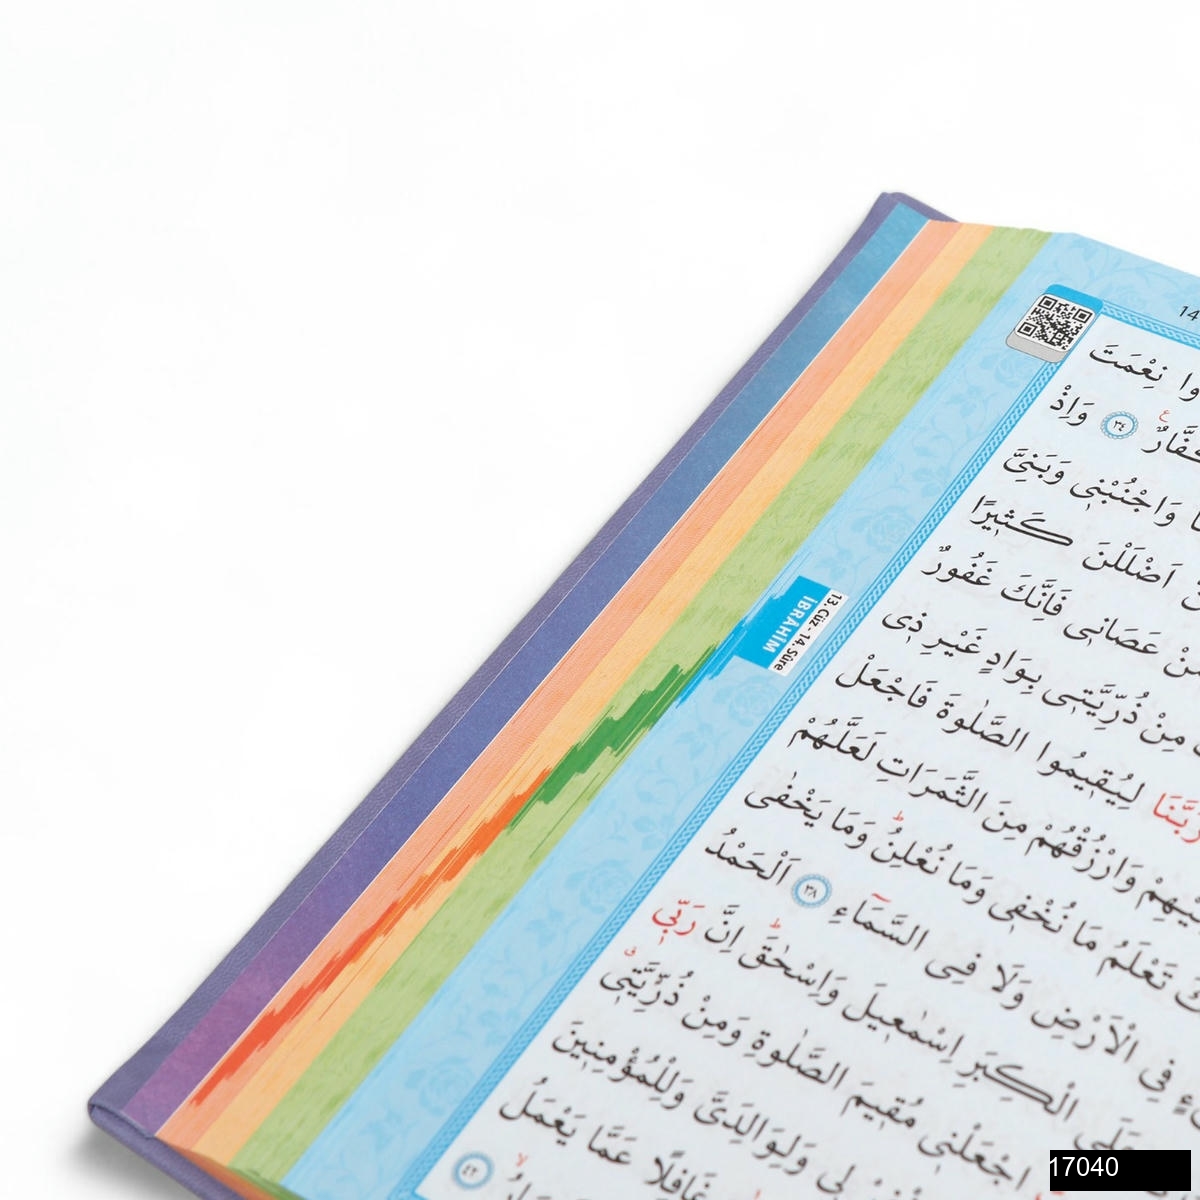 14
وا نِعْمَتَ
غَفَّارٌ ﴿٣٤﴾ وَاِذْ
وَاجْنُبْنٖى وَبَنِىَّ
اَضْلَلْنَ كَثٖيرًا
عَصَانٖى فَاِنَّكَ غَفُورٌ
مِنْ ذُرِّيَّتٖى بِوَادٍ غَيْرِ ذٖى
رَبَّنَا لِيُقٖيمُوا الصَّلٰوةَ فَاجْعَلْ
وَارْزُقْهُمْ مِنَ الثَّمَرَاتِ لَعَلَّهُمْ
تَعْلَمُ مَا نُخْفٖى وَمَا نُعْلِنُ وَمَا يَخْفٰى
فِى الْاَرْضِ وَلَا فِى السَّمَاءِ ﴿٣٨﴾ اَلْحَمْدُ
عَلَى الْكِبَرِ اِسْمٰعٖيلَ وَاِسْحٰقَ اِنَّ رَبّٖى
اجْعَلْنٖى مُقٖيمَ الصَّلٰوةِ وَمِنْ ذُرِّيَّتٖى
لٖى وَلِوَالِدَىَّ وَلِلْمُؤْمِنٖينَ
غَافِلًا عَمَّا يَعْمَلُ
﴿٤٢﴾
13. Cüz - 14. Sûre
İBRAHİM
17040